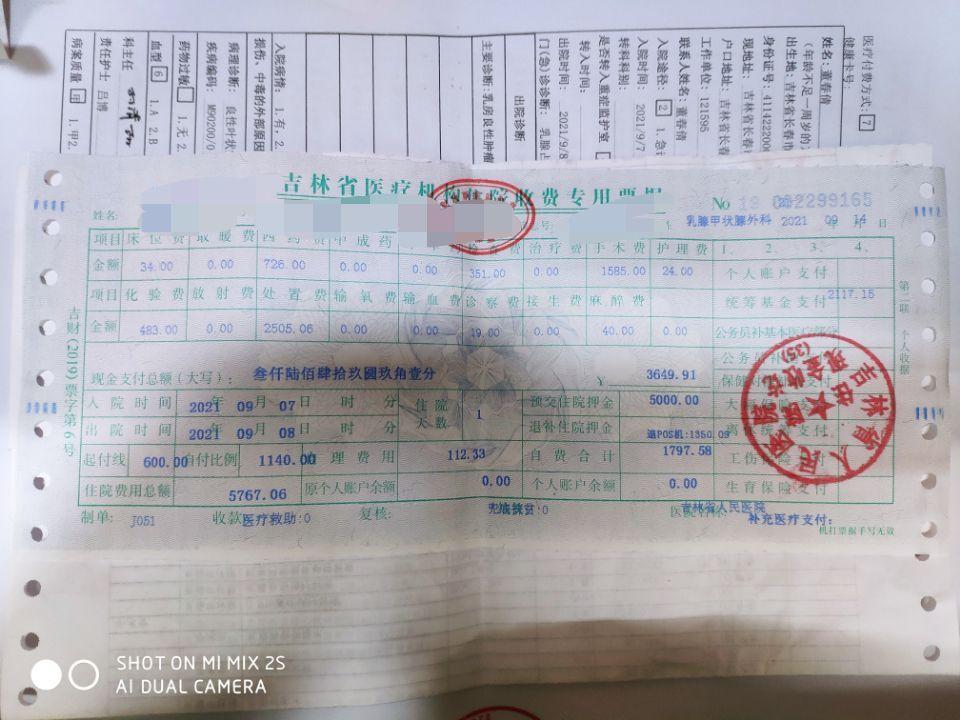 医疗付费方式: 7
健康卡号:
姓名: 董春倩
(年龄不足一周岁的
出生地: 吉林省长春市
身份证号: 4114222006
现地址: 吉林省长春
户口地址: 吉林省长春
工作单位: 121595
联系人姓名: 董春倩
入院途径: 2 1.急
入院时间: 2021/9/7
转科科别:
是否转入重症监护室
转入时间:
出院时间: 2021/9/8
门(急)诊诊断: 乳腺占
出院诊断
主要诊断: 乳房良性肿瘤
入院病情: 1.有, 2.
损伤、中毒的外部原因
病理诊断: 良性叶状
疾病编码: M90200/0
药物过敏 1.无 2.
血型 6 1.A 2.B
科主任
责任护士 吕博
病案质量 甲 1.甲2.
吉林省医疗机构住院收费专用票据
No 19 002299165
姓名: 号: 乳腺甲状腺外科 2021 09 14 日
项目 床位费 取暖费 西药费 中成药 检查费 治疗费 手术费 护理费 1. 2. 3. 4.
金额 34.00 0.00 726.00 0.00 0.00 351.00 0.00 1585.00 24.00 个人账户支付
项目 化验费 放射费 处置费 输氧费 输血费 诊察费 接生费 麻醉费 统筹基金支付 2117.15
金额 483.00 0.00 2505.06 0.00 0.00 19.00 0.00 40.00 0.00 公务员补基本医疗部分
公务员补
现金支付总额(大写): 叁仟陆佰肆拾玖圆玖角壹分 ¥ 3649.91 保健对
入院时间 2021 年 09 月 07 日 时 分 住院天数 1 预交住院押金 5000.00
出院时间 2021 年 09 月 08 日 时 分 退补住院押金 退POS机:1350.09 离休统筹支付
起付线 600.00 自付比例 1140.00 理费用 112.33 自费合计 1797.58 工伤保险支付
住院费用总额 5767.06 原个人账户余额 0.00 个人账户余额 0.00 生育保险支付
制单: J051 收款 医疗救助:0 复核: 兜底扶贫:0 医院名称: 吉林省人民医院 补充医疗支付:
机打票据手写无效
吉财(2019)票字第6号
第二联 个人收据
吉林省人民医院
住院处
现金收讫
(35)
SHOT ON MI MIX 2S
AI DUAL CAMERA